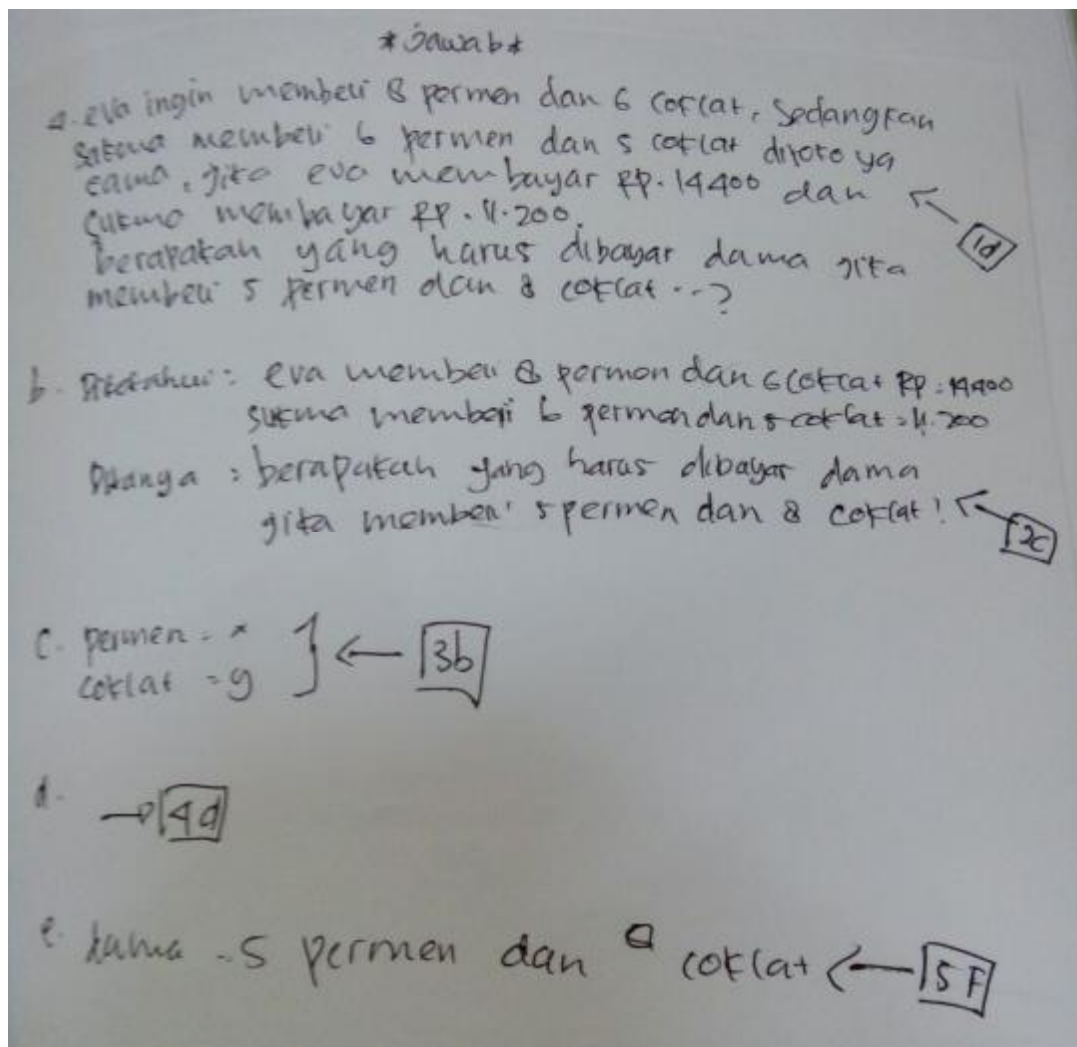 *Jawab*
a. eva ingin membeli 8 permen dan 6 coklat, sedangkan
membeli 6 permen dan 5 coklat ditoko ya
sama, jika eva membayar Rp. 14400 dan
sukmo membayar Rp. 11.200.
1d
berapakah yang harus dibayar dama jika
membeli 5 permen dan 8 coklat ..?
b. Diketahui : eva membeli 8 permen dan 6 coklat Rp. 14400
sukma membeli 6 permen dan 5 coklat = 11.200
Ditanya : berapakah yang harus dibayar dama
jika membeli 5 permen dan 8 coklat!
2c
c. permen = x
coklat = y
3b
d.
4d
e. dama = 5 permen dan coklat
5F